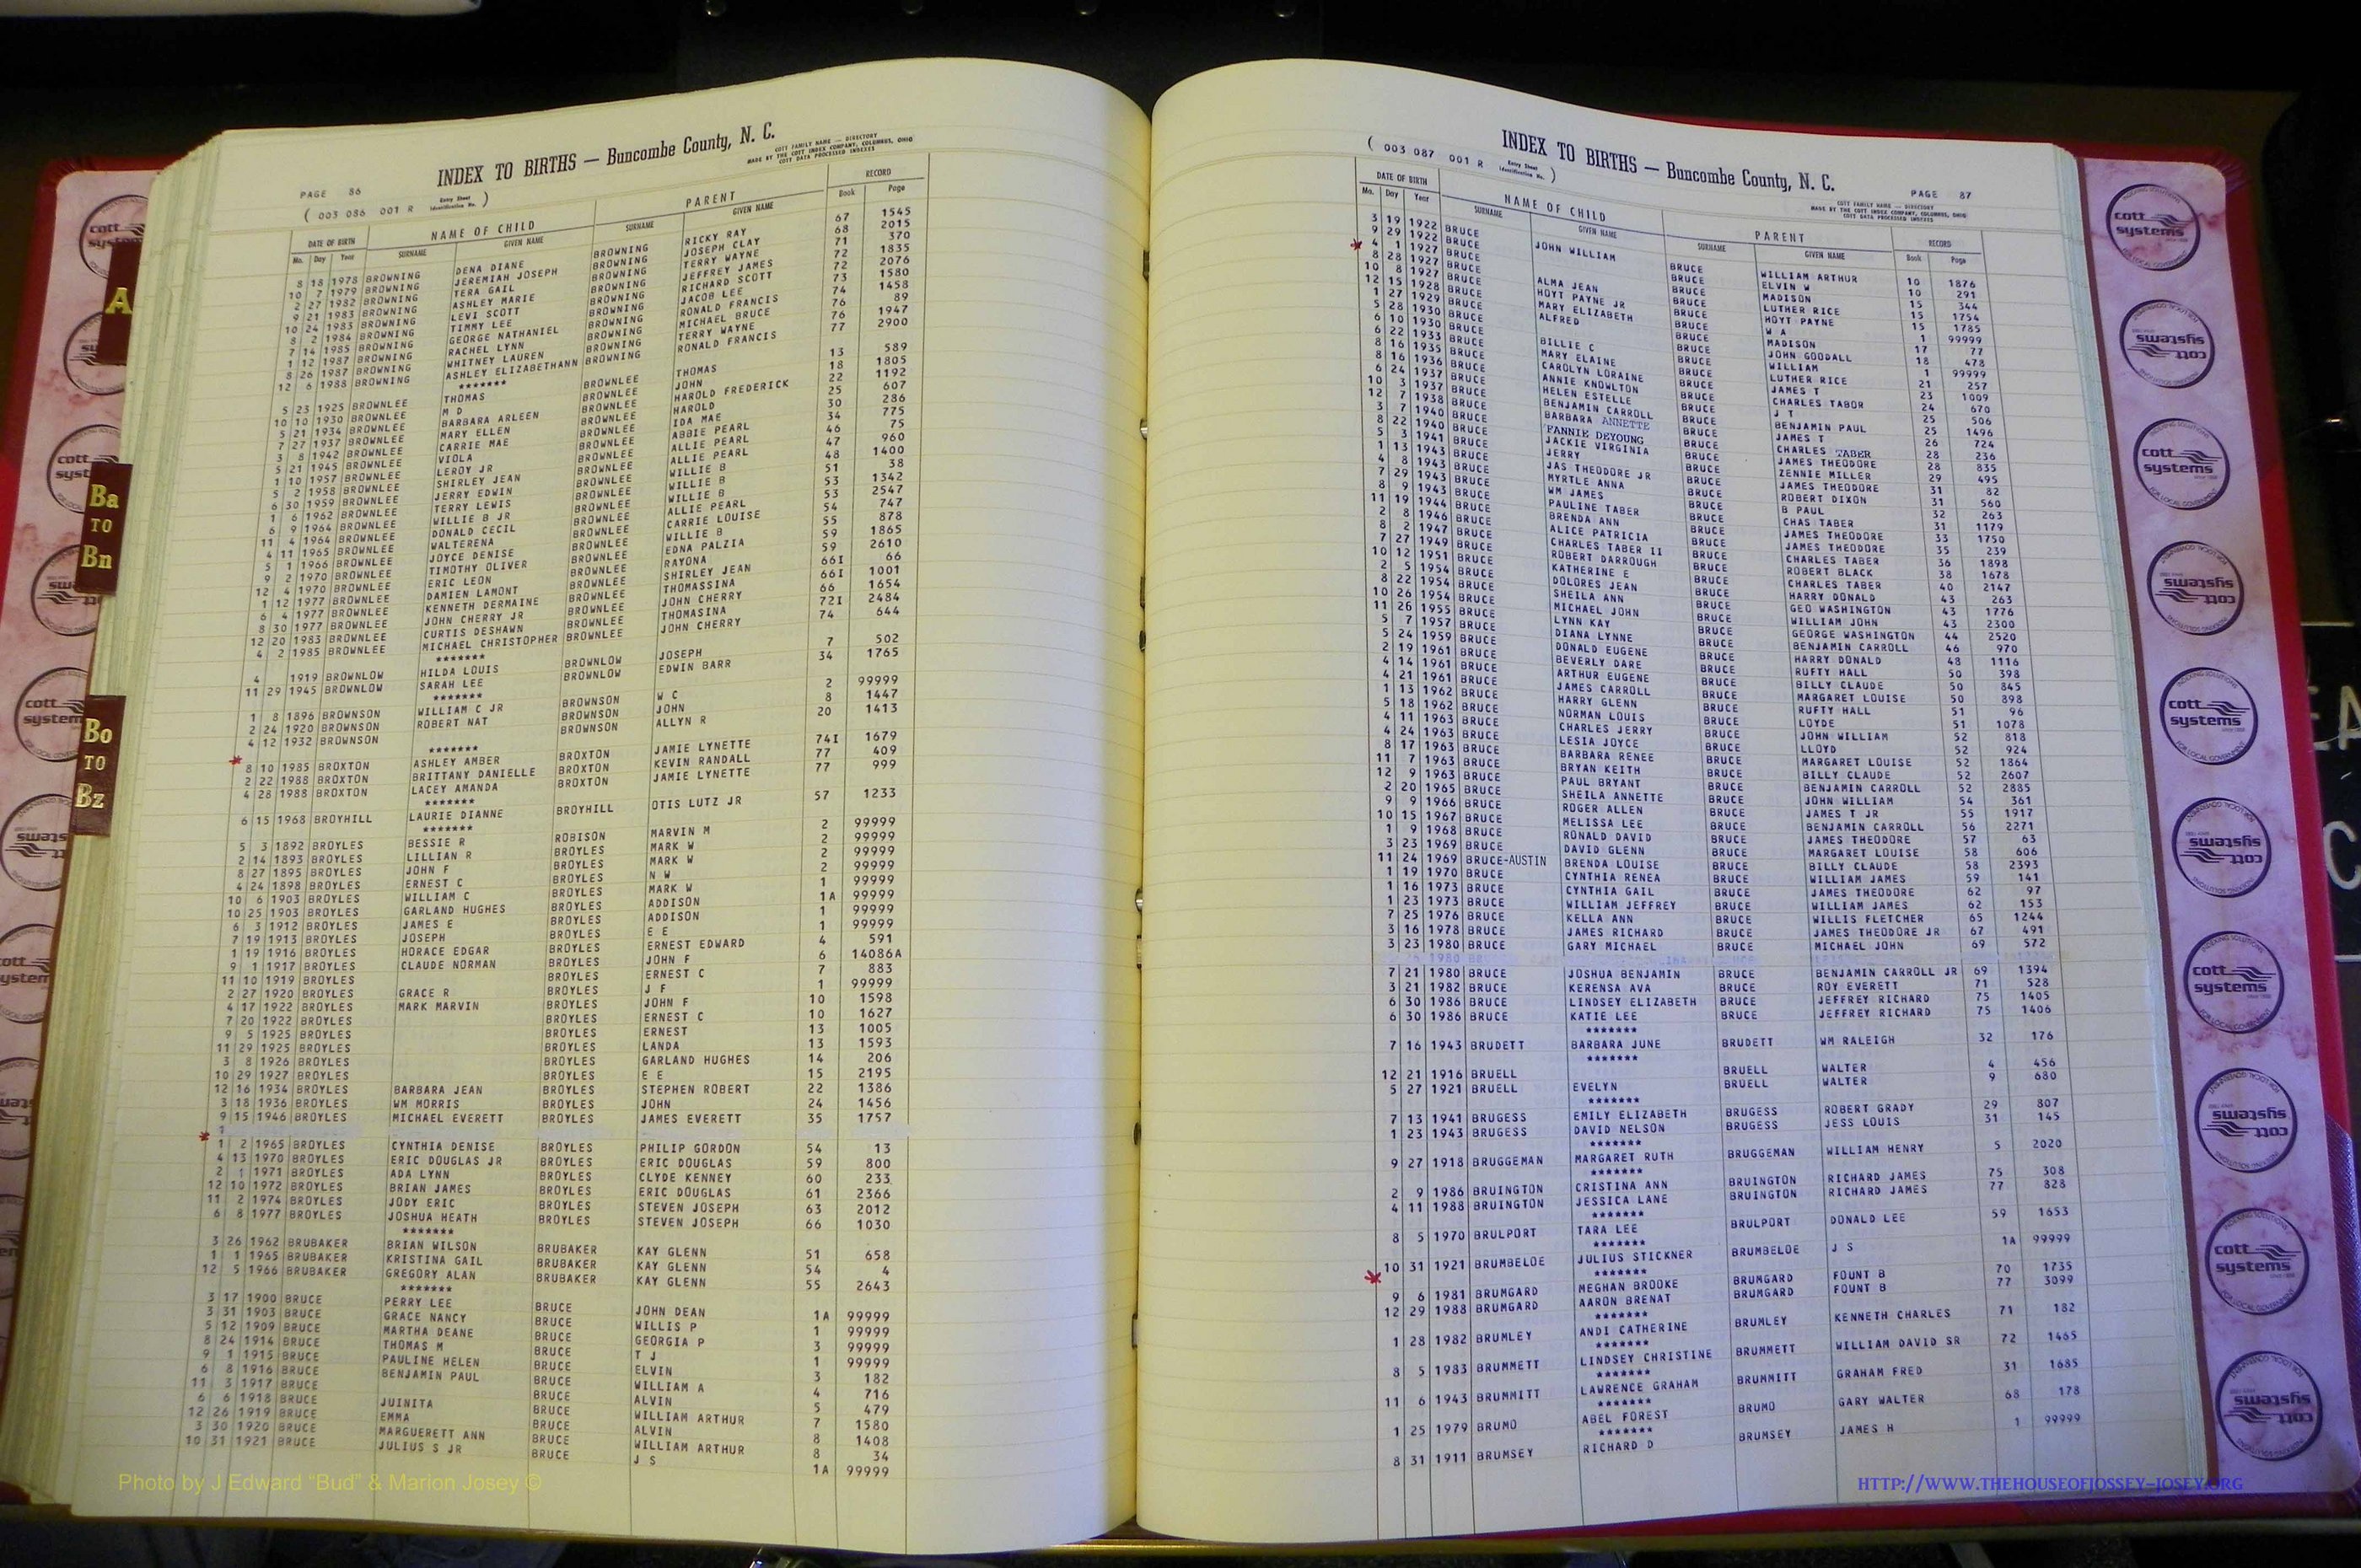 A
Ba TO Bn
Bo TO Bz
cott systems
INDEX TO BIRTHS — Buncombe County, N. C.
COTT FAMILY NAME — DIRECTORY
MADE BY THE COTT INDEX COMPANY, COLUMBUS, OHIO
COTT DATA PROCESSED INDEXES
PAGE 86
( 003 086 001 R Entry Sheet Identification No. )
DATE OF BIRTH NAME OF CHILD PARENT RECORD
Mo. Day Year SURNAME GIVEN NAME SURNAME GIVEN NAME Book Page
8 18 1978 BROWNING DENA DIANE BROWNING RICKY RAY 67 1545
10 7 1979 BROWNING JEREMIAH JOSEPH BROWNING JOSEPH CLAY 68 2015
2 27 1982 BROWNING TERA GAIL BROWNING TERRY WAYNE 71 370
9 21 1983 BROWNING ASHLEY MARIE BROWNING JEFFREY JAMES 72 1835
10 24 1983 BROWNING LEVI SCOTT BROWNING RICHARD SCOTT 72 2076
8 2 1984 BROWNING TIMMY LEE BROWNING JACOB LEE 73 1580
7 14 1985 BROWNING GEORGE NATHANIEL BROWNING RONALD FRANCIS 74 1458
1 12 1987 BROWNING RACHEL LYNN BROWNING MICHAEL BRUCE 76 89
8 26 1987 BROWNING WHITNEY LAUREN BROWNING TERRY WAYNE 76 1947
12 6 1988 BROWNING ASHLEY ELIZABETHANN BROWNING RONALD FRANCIS 77 2900
*******
5 23 1925 BROWNLEE THOMAS BROWNLEE THOMAS 13 589
10 10 1930 BROWNLEE M D BROWNLEE JOHN 18 1805
5 21 1934 BROWNLEE BARBARA ARLEEN BROWNLEE HAROLD FREDERICK 22 1192
7 27 1937 BROWNLEE MARY ELLEN BROWNLEE HAROLD 25 607
3 8 1942 BROWNLEE CARRIE MAE BROWNLEE IDA MAE 30 286
5 21 1945 BROWNLEE VIOLA BROWNLEE ABBIE PEARL 34 775
1 10 1957 BROWNLEE LEROY JR BROWNLEE ALLIE PEARL 46 75
5 2 1958 BROWNLEE SHIRLEY JEAN BROWNLEE ALLIE PEARL 47 960
6 30 1959 BROWNLEE JERRY EDWIN BROWNLEE WILLIE B 48 1400
1 6 1962 BROWNLEE TERRY LEWIS BROWNLEE WILLIE B 51 38
6 9 1964 BROWNLEE WILLIE B JR BROWNLEE WILLIE B 53 1342
11 4 1964 BROWNLEE DONALD CECIL BROWNLEE ALLIE PEARL 53 2547
4 11 1965 BROWNLEE WALTERENA BROWNLEE CARRIE LOUISE 54 747
5 1 1966 BROWNLEE JOYCE DENISE BROWNLEE WILLIE B 55 878
9 2 1970 BROWNLEE TIMOTHY OLIVER BROWNLEE EDNA PALZIA 59 1865
12 4 1970 BROWNLEE ERIC LEON BROWNLEE RAYONA 59 2610
1 12 1977 BROWNLEE DAMIEN LAMONT BROWNLEE SHIRLEY JEAN 66I 66
6 4 1977 BROWNLEE KENNETH DERMAINE BROWNLEE THOMASSINA 66I 1001
8 30 1977 BROWNLEE JOHN CHERRY JR BROWNLEE JOHN CHERRY 66 1654
12 20 1983 BROWNLEE CURTIS DESHAWN BROWNLEE THOMASINA 72I 2484
4 2 1985 BROWNLEE MICHAEL CHRISTOPHER BROWNLEE JOHN CHERRY 74 644
*******
4 1919 BROWNLOW HILDA LOUIS BROWNLOW JOSEPH 7 502
11 29 1945 BROWNLOW SARAH LEE BROWNLOW EDWIN BARR 34 1765
*******
1 8 1896 BROWNSON WILLIAM C JR BROWNSON W C 2 99999
2 24 1920 BROWNSON ROBERT NAT BROWNSON JOHN 8 1447
4 12 1932 BROWNSON BROWNSON ALLYN R 20 1413
*******
8 10 1985 BROXTON ASHLEY AMBER BROXTON JAMIE LYNETTE 74I 1679
2 22 1988 BROXTON BRITTANY DANIELLE BROXTON KEVIN RANDALL 77 409
4 28 1988 BROXTON LACEY AMANDA BROXTON JAMIE LYNETTE 77 999
*******
6 15 1968 BROYHILL LAURIE DIANNE BROYHILL OTIS LUTZ JR 57 1233
*******
5 3 1892 BROYLES BESSIE R ROBISON MARVIN M 2 99999
2 14 1893 BROYLES LILLIAN R BROYLES MARK W 2 99999
8 27 1895 BROYLES JOHN F BROYLES MARK W 2 99999
4 24 1898 BROYLES ERNEST C BROYLES N W 2 99999
10 6 1903 BROYLES WILLIAM C BROYLES MARK W 1 99999
10 25 1903 BROYLES GARLAND HUGHES BROYLES ADDISON 1A 99999
6 3 1912 BROYLES JAMES E BROYLES ADDISON 1 99999
7 19 1913 BROYLES JOSEPH BROYLES E E 1 99999
1 19 1916 BROYLES HORACE EDGAR BROYLES ERNEST EDWARD 4 591
9 1 1917 BROYLES CLAUDE NORMAN BROYLES JOHN F 6 14086A
11 10 1919 BROYLES BROYLES ERNEST C 7 883
2 27 1920 BROYLES GRACE R BROYLES J F 1 99999
4 17 1922 BROYLES MARK MARVIN BROYLES JOHN F 10 1598
7 20 1922 BROYLES BROYLES ERNEST C 10 1627
9 5 1925 BROYLES BROYLES ERNEST 13 1005
11 29 1925 BROYLES BROYLES LANDA 13 1593
3 8 1926 BROYLES BROYLES GARLAND HUGHES 14 206
10 29 1927 BROYLES BROYLES E E 15 2195
12 16 1934 BROYLES BARBARA JEAN BROYLES STEPHEN ROBERT 22 1386
3 18 1936 BROYLES WM MORRIS BROYLES JOHN 24 1456
9 15 1946 BROYLES MICHAEL EVERETT BROYLES JAMES EVERETT 35 1757
1 2 1965 BROYLES CYNTHIA DENISE BROYLES PHILIP GORDON 54 13
4 13 1970 BROYLES ERIC DOUGLAS JR BROYLES ERIC DOUGLAS 59 800
2 1 1971 BROYLES ADA LYNN BROYLES CLYDE KENNEY 60 233
12 10 1972 BROYLES BRIAN JAMES BROYLES ERIC DOUGLAS 61 2366
11 2 1974 BROYLES JODY ERIC BROYLES STEVEN JOSEPH 63 2012
6 8 1977 BROYLES JOSHUA HEATH BROYLES STEVEN JOSEPH 66 1030
*******
3 26 1962 BRUBAKER BRIAN WILSON BRUBAKER KAY GLENN 51 658
1 1 1965 BRUBAKER KRISTINA GAIL BRUBAKER KAY GLENN 54 4
12 5 1966 BRUBAKER GREGORY ALAN BRUBAKER KAY GLENN 55 2643
*******
3 17 1900 BRUCE PERRY LEE BRUCE JOHN DEAN 1A 99999
3 31 1903 BRUCE GRACE NANCY BRUCE WILLIS P 1 99999
5 12 1909 BRUCE MARTHA DEANE BRUCE GEORGIA P 3 99999
8 24 1914 BRUCE THOMAS M BRUCE T J 1 99999
9 1 1915 BRUCE PAULINE HELEN BRUCE ELVIN 3 182
6 8 1916 BRUCE BENJAMIN PAUL BRUCE WILLIAM A 4 716
11 3 1917 BRUCE BRUCE ALVIN 5 479
6 6 1918 BRUCE JUINITA BRUCE WILLIAM ARTHUR 7 1580
12 26 1919 BRUCE EMMA BRUCE ALVIN 8 1408
3 30 1920 BRUCE MARGUERETT ANN BRUCE WILLIAM ARTHUR 8 34
10 31 1921 BRUCE JULIUS S JR BRUCE J S 1A 99999
Photo by J Edward “Bud” & Marion Josey ©
INDEX TO BIRTHS — Buncombe County, N. C.
( 003 087 001 R Entry Sheet Identification No. )
PAGE 87
COTT FAMILY NAME — DIRECTORY
MADE BY THE COTT INDEX COMPANY, COLUMBUS, OHIO
COTT DATA PROCESSED INDEXES
DATE OF BIRTH NAME OF CHILD PARENT RECORD
Mo. Day Year SURNAME GIVEN NAME SURNAME GIVEN NAME Book Page
3 19 1922 BRUCE BRUCE WILLIAM ARTHUR 10 1876
9 29 1922 BRUCE JOHN WILLIAM BRUCE ELVIN W 10 291
4 1 1927 BRUCE BRUCE MADISON 15 344
8 28 1927 BRUCE ALMA JEAN BRUCE LUTHER RICE 15 1754
10 8 1927 BRUCE HOYT PAYNE JR BRUCE HOYT PAYNE 15 1785
12 15 1928 BRUCE MARY ELIZABETH BRUCE W A 1 99999
1 27 1929 BRUCE ALFRED BRUCE MADISON 17 77
5 28 1930 BRUCE BRUCE JOHN GOODALL 18 478
6 10 1930 BRUCE BILLIE C BRUCE WILLIAM 1 99999
6 22 1933 BRUCE MARY ELAINE BRUCE LUTHER RICE 21 257
8 16 1935 BRUCE CAROLYN LORAINE BRUCE JAMES T 23 1009
8 16 1936 BRUCE ANNIE KNOWLTON BRUCE CHARLES TABOR 24 670
6 24 1937 BRUCE HELEN ESTELLE BRUCE J T 25 506
10 3 1937 BRUCE BENJAMIN CARROLL BRUCE BENJAMIN PAUL 25 1496
12 7 1938 BRUCE BARBARA ANNETTE BRUCE JAMES T 26 724
3 7 1940 BRUCE FANNIE DEYOUNG BRUCE CHARLES TABER 28 236
8 22 1940 BRUCE JACKIE VIRGINIA BRUCE JAMES THEODORE 28 835
5 3 1941 BRUCE JERRY BRUCE ZENNIE MILLER 29 495
1 13 1943 BRUCE JAS THEODORE JR BRUCE JAMES THEODORE 31 82
4 8 1943 BRUCE MYRTLE ANNA BRUCE ROBERT DIXON 31 560
7 29 1943 BRUCE WM JAMES BRUCE B PAUL 32 263
8 9 1943 BRUCE PAULINE TABER BRUCE CHAS TABER 31 1179
11 19 1944 BRUCE BRENDA ANN BRUCE JAMES THEODORE 33 1750
2 8 1946 BRUCE ALICE PATRICIA BRUCE JAMES THEODORE 35 239
8 2 1947 BRUCE CHARLES TABER II BRUCE CHARLES TABER 36 1898
7 27 1949 BRUCE ROBERT DARROUGH BRUCE ROBERT BLACK 38 1678
10 12 1951 BRUCE KATHERINE E BRUCE CHARLES TABER 40 2147
2 5 1954 BRUCE DOLORES JEAN BRUCE HARRY DONALD 43 263
8 22 1954 BRUCE SHEILA ANN BRUCE GEO WASHINGTON 43 1776
10 26 1954 BRUCE MICHAEL JOHN BRUCE WILLIAM JOHN 43 2300
11 26 1955 BRUCE LYNN KAY BRUCE GEORGE WASHINGTON 44 2520
5 7 1957 BRUCE DIANA LYNNE BRUCE BENJAMIN CARROLL 46 970
5 24 1959 BRUCE DONALD EUGENE BRUCE HARRY DONALD 48 1116
2 19 1961 BRUCE BEVERLY DARE BRUCE RUFTY HALL 50 398
4 14 1961 BRUCE ARTHUR EUGENE BRUCE BILLY CLAUDE 50 845
4 21 1961 BRUCE JAMES CARROLL BRUCE MARGARET LOUISE 50 898
1 13 1962 BRUCE HARRY GLENN BRUCE RUFTY HALL 51 96
5 18 1962 BRUCE NORMAN LOUIS BRUCE LOYDE 51 1078
4 11 1963 BRUCE CHARLES JERRY BRUCE JOHN WILLIAM 52 818
4 24 1963 BRUCE LESIA JOYCE BRUCE LLOYD 52 924
8 17 1963 BRUCE BARBARA RENEE BRUCE MARGARET LOUISE 52 1864
11 7 1963 BRUCE BRYAN KEITH BRUCE BILLY CLAUDE 52 2607
12 9 1963 BRUCE PAUL BRYANT BRUCE BENJAMIN CARROLL 52 2885
2 20 1965 BRUCE SHEILA ANNETTE BRUCE JOHN WILLIAM 54 361
9 9 1966 BRUCE ROGER ALLEN BRUCE JAMES T JR 55 1917
10 15 1967 BRUCE MELISSA LEE BRUCE BENJAMIN CARROLL 56 2271
1 9 1968 BRUCE RONALD DAVID BRUCE JAMES THEODORE 57 63
3 23 1969 BRUCE DAVID GLENN BRUCE MARGARET LOUISE 58 606
11 24 1969 BRUCE-AUSTIN BRENDA LOUISE BRUCE BILLY CLAUDE 58 2393
1 19 1970 BRUCE CYNTHIA RENEA BRUCE WILLIAM JAMES 59 141
1 16 1973 BRUCE CYNTHIA GAIL BRUCE JAMES THEODORE 62 97
1 23 1973 BRUCE WILLIAM JEFFREY BRUCE WILLIAM JAMES 62 153
7 25 1976 BRUCE KELLA ANN BRUCE WILLIS FLETCHER 65 1244
3 16 1978 BRUCE JAMES RICHARD BRUCE JAMES THEODORE JR 67 491
3 23 1980 BRUCE GARY MICHAEL BRUCE MICHAEL JOHN 69 572
7 21 1980 BRUCE JOSHUA BENJAMIN BRUCE BENJAMIN CARROLL JR 69 1394
3 21 1982 BRUCE KERENSA AVA BRUCE ROY EVERETT 71 528
6 30 1986 BRUCE LINDSEY ELIZABETH BRUCE JEFFREY RICHARD 75 1405
6 30 1986 BRUCE KATIE LEE BRUCE JEFFREY RICHARD 75 1406
*******
7 16 1943 BRUDETT BARBARA JUNE BRUDETT WM RALEIGH 32 176
*******
12 21 1916 BRUELL BRUELL WALTER 4 456
5 27 1921 BRUELL EVELYN BRUELL WALTER 9 680
*******
7 13 1941 BRUGESS EMILY ELIZABETH BRUGESS ROBERT GRADY 29 807
1 23 1943 BRUGESS DAVID NELSON BRUGESS JESS LOUIS 31 145
*******
9 27 1918 BRUGGEMAN MARGARET RUTH BRUGGEMAN WILLIAM HENRY 5 2020
*******
2 9 1986 BRUINGTON CRISTINA ANN BRUINGTON RICHARD JAMES 75 308
4 11 1988 BRUINGTON JESSICA LANE BRUINGTON RICHARD JAMES 77 828
*******
8 5 1970 BRULPORT TARA LEE BRULPORT DONALD LEE 59 1653
*******
10 31 1921 BRUMBELOE JULIUS STICKNER BRUMBELOE J S 1A 99999
*******
9 6 1981 BRUMGARD MEGHAN BROOKE BRUMGARD FOUNT B 70 1735
12 29 1988 BRUMGARD AARON BRENAT BRUMGARD FOUNT B 77 3099
*******
1 28 1982 BRUMLEY ANDI CATHERINE BRUMLEY KENNETH CHARLES 71 182
*******
8 5 1983 BRUMMETT LINDSEY CHRISTINE BRUMMETT WILLIAM DAVID SR 72 1465
*******
11 6 1943 BRUMMITT LAWRENCE GRAHAM BRUMMITT GRAHAM FRED 31 1685
*******
1 25 1979 BRUMO ABEL FOREST BRUMO GARY WALTER 68 178
*******
8 31 1911 BRUMSEY RICHARD D BRUMSEY JAMES H 1 99999
HTTP://WWW.THEHOUSEOFJOSSEY-JOSEY.ORG
cott systems